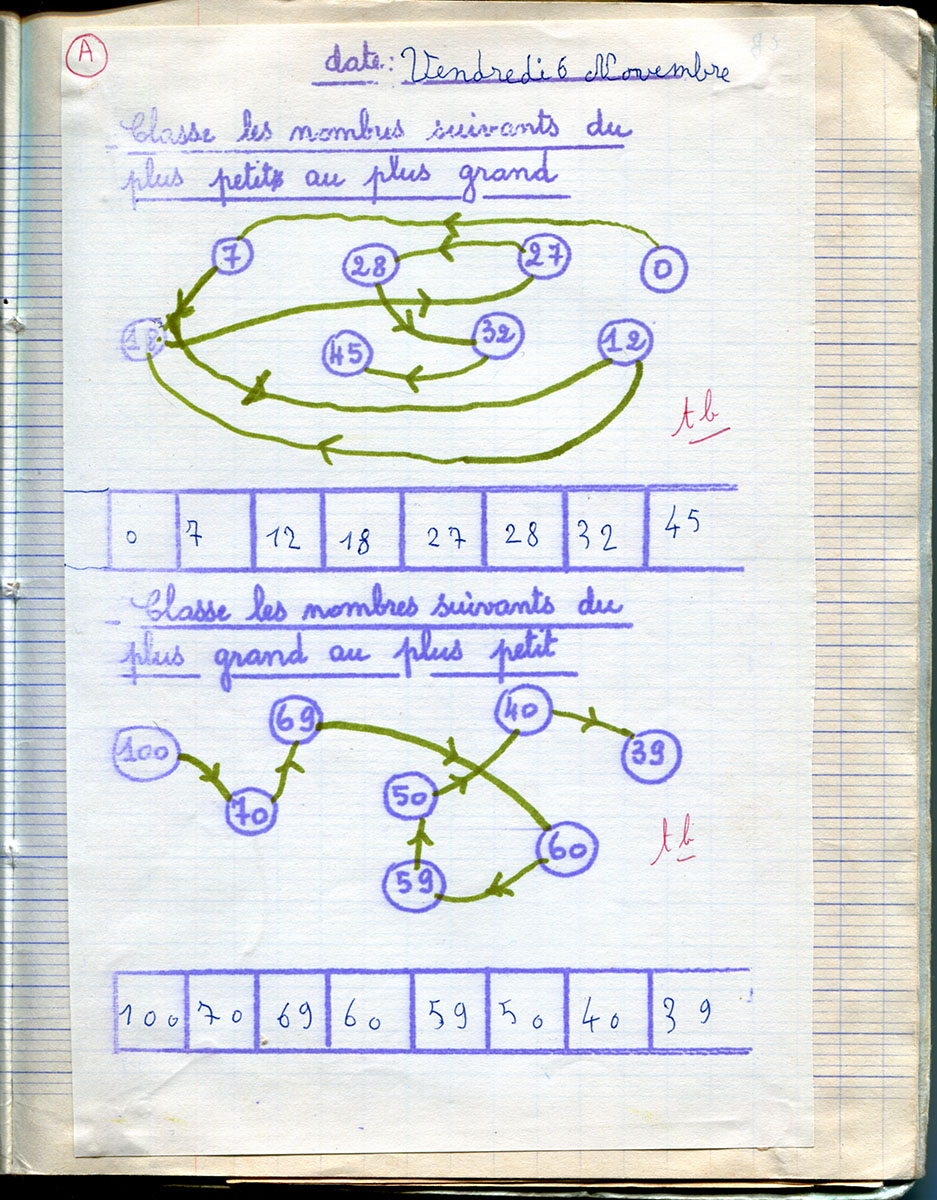 A
date: Vendredi 6 Novembre
Classe les nombres suivants du
plus petits au plus grand
7 28 27 0
18 45 32 12
tb
0 7 12 18 27 28 32 45
Classe les nombres suivants du
plus grand au plus petit
100 69 40 39
70 50
59 60
tb
100 70 69 60 59 50 40 39